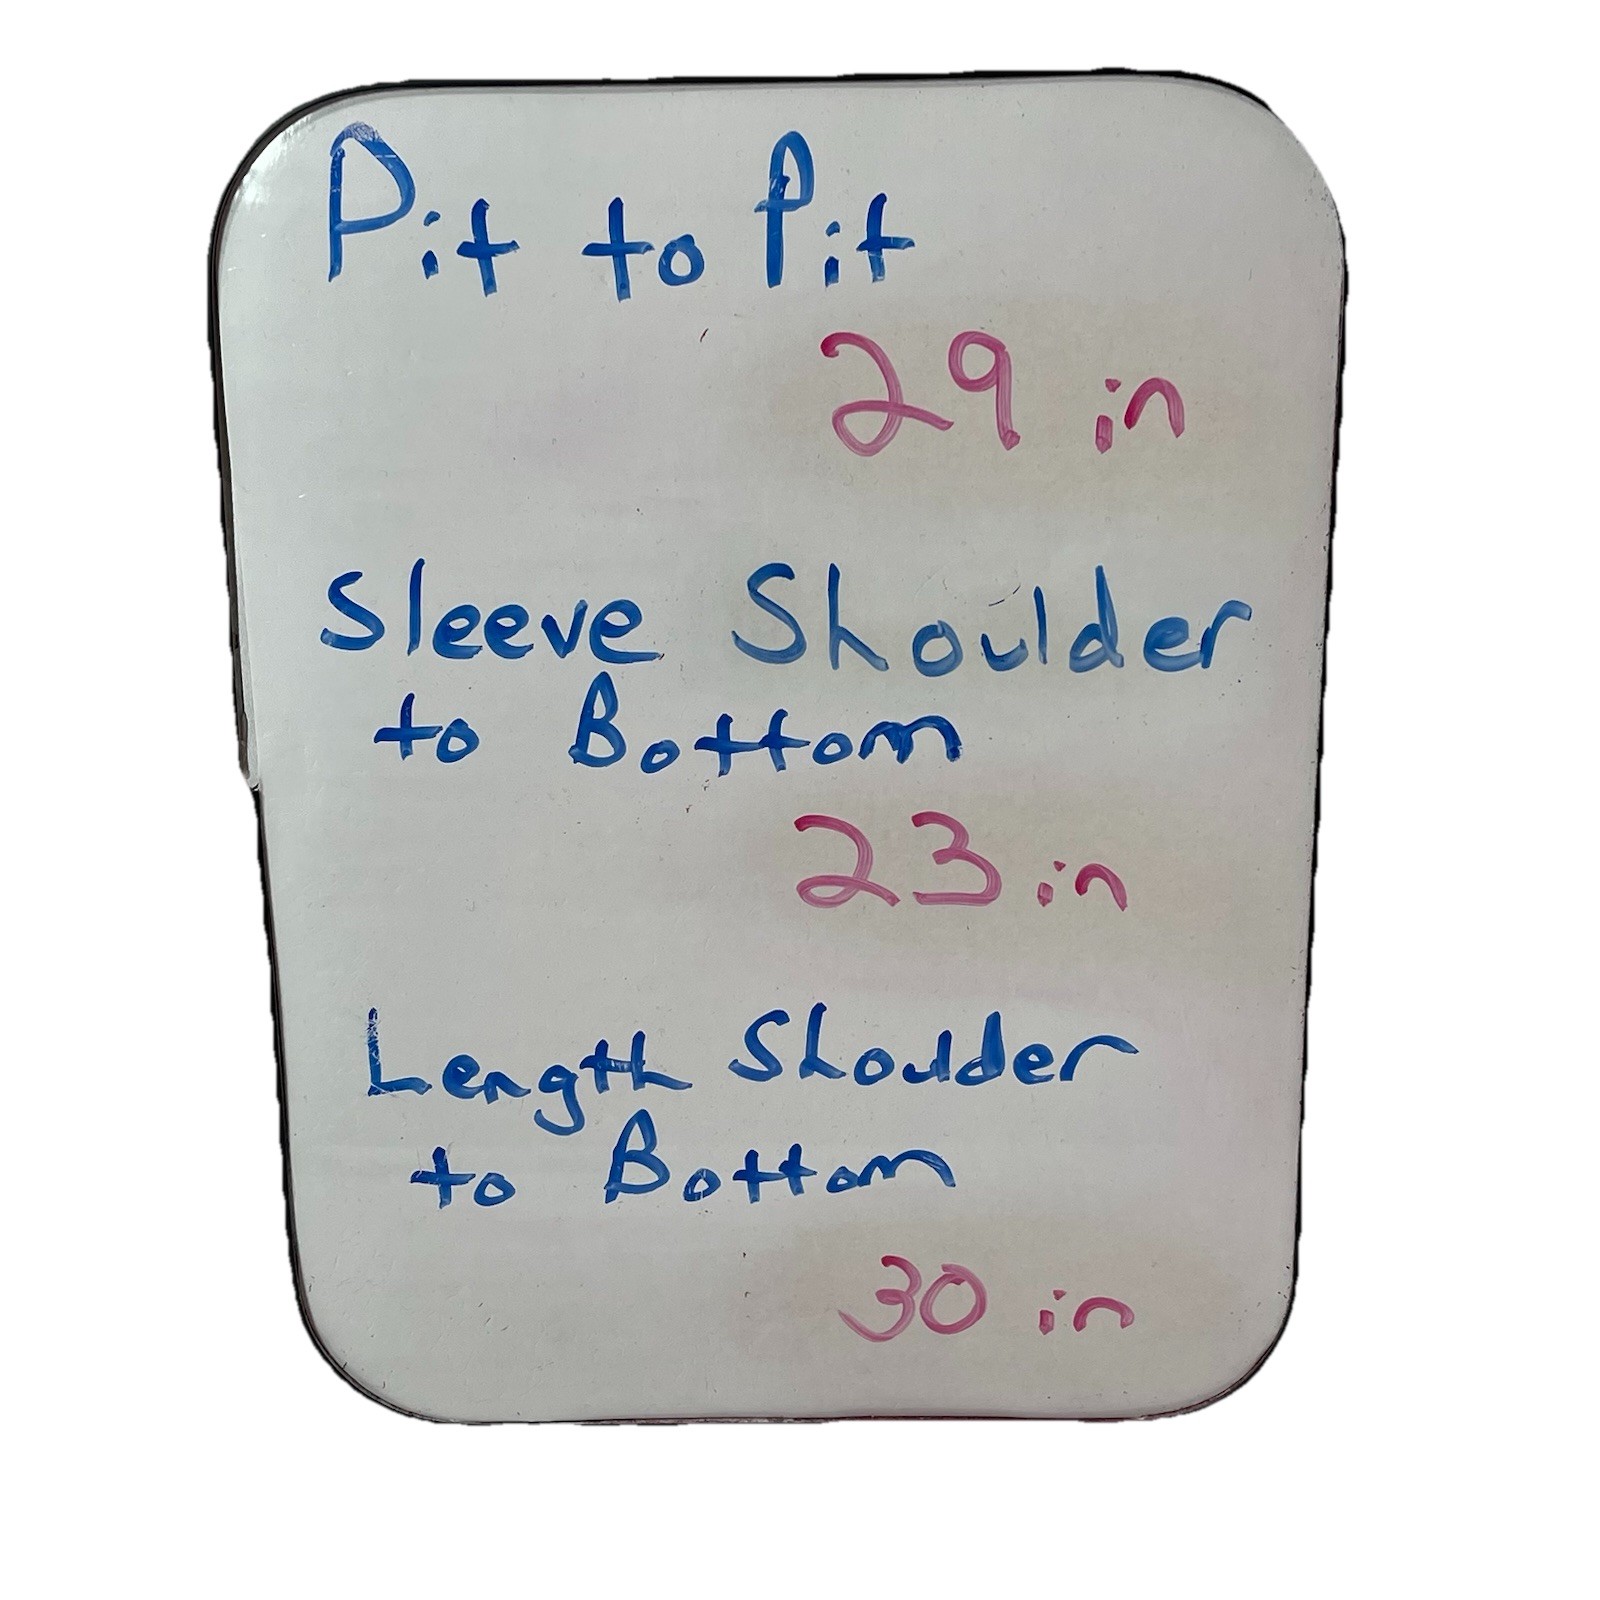 Pit to Pit
29 in
Sleeve Shoulder
to Bottom
23 in
Length Shoulder
to Bottom
30 in